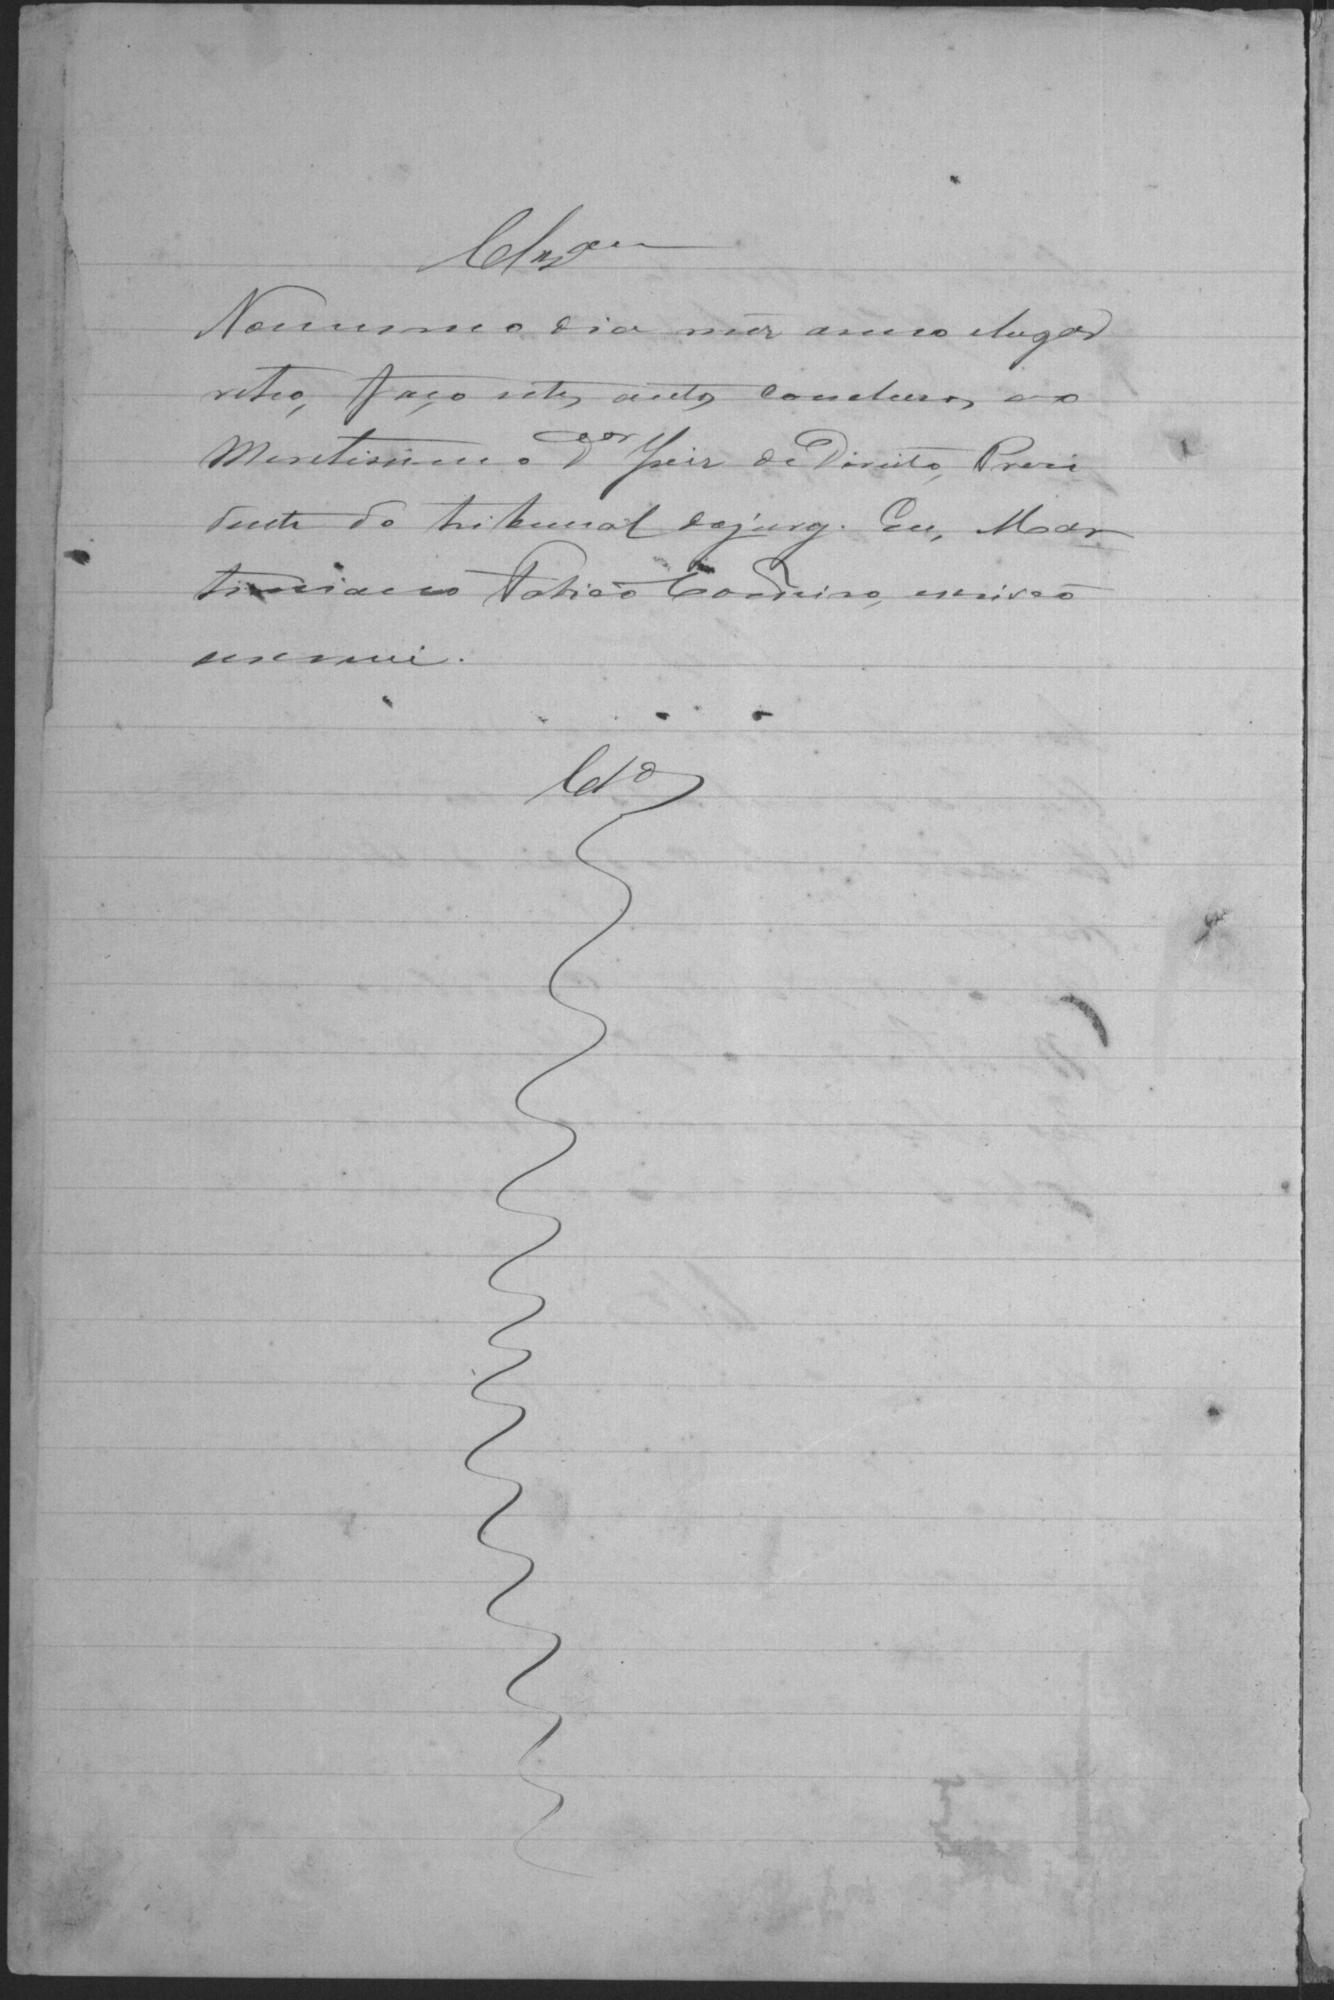 Clsam
No mesmo dia mez anno elugar
retro, faço estes autos conclusos, ao
Meretissimo Dor Juiz de Direito, Presi
dente do tribunal dojury. Eu, Mar
timiano Cordeiro, escrivão
escrevi.
Clos